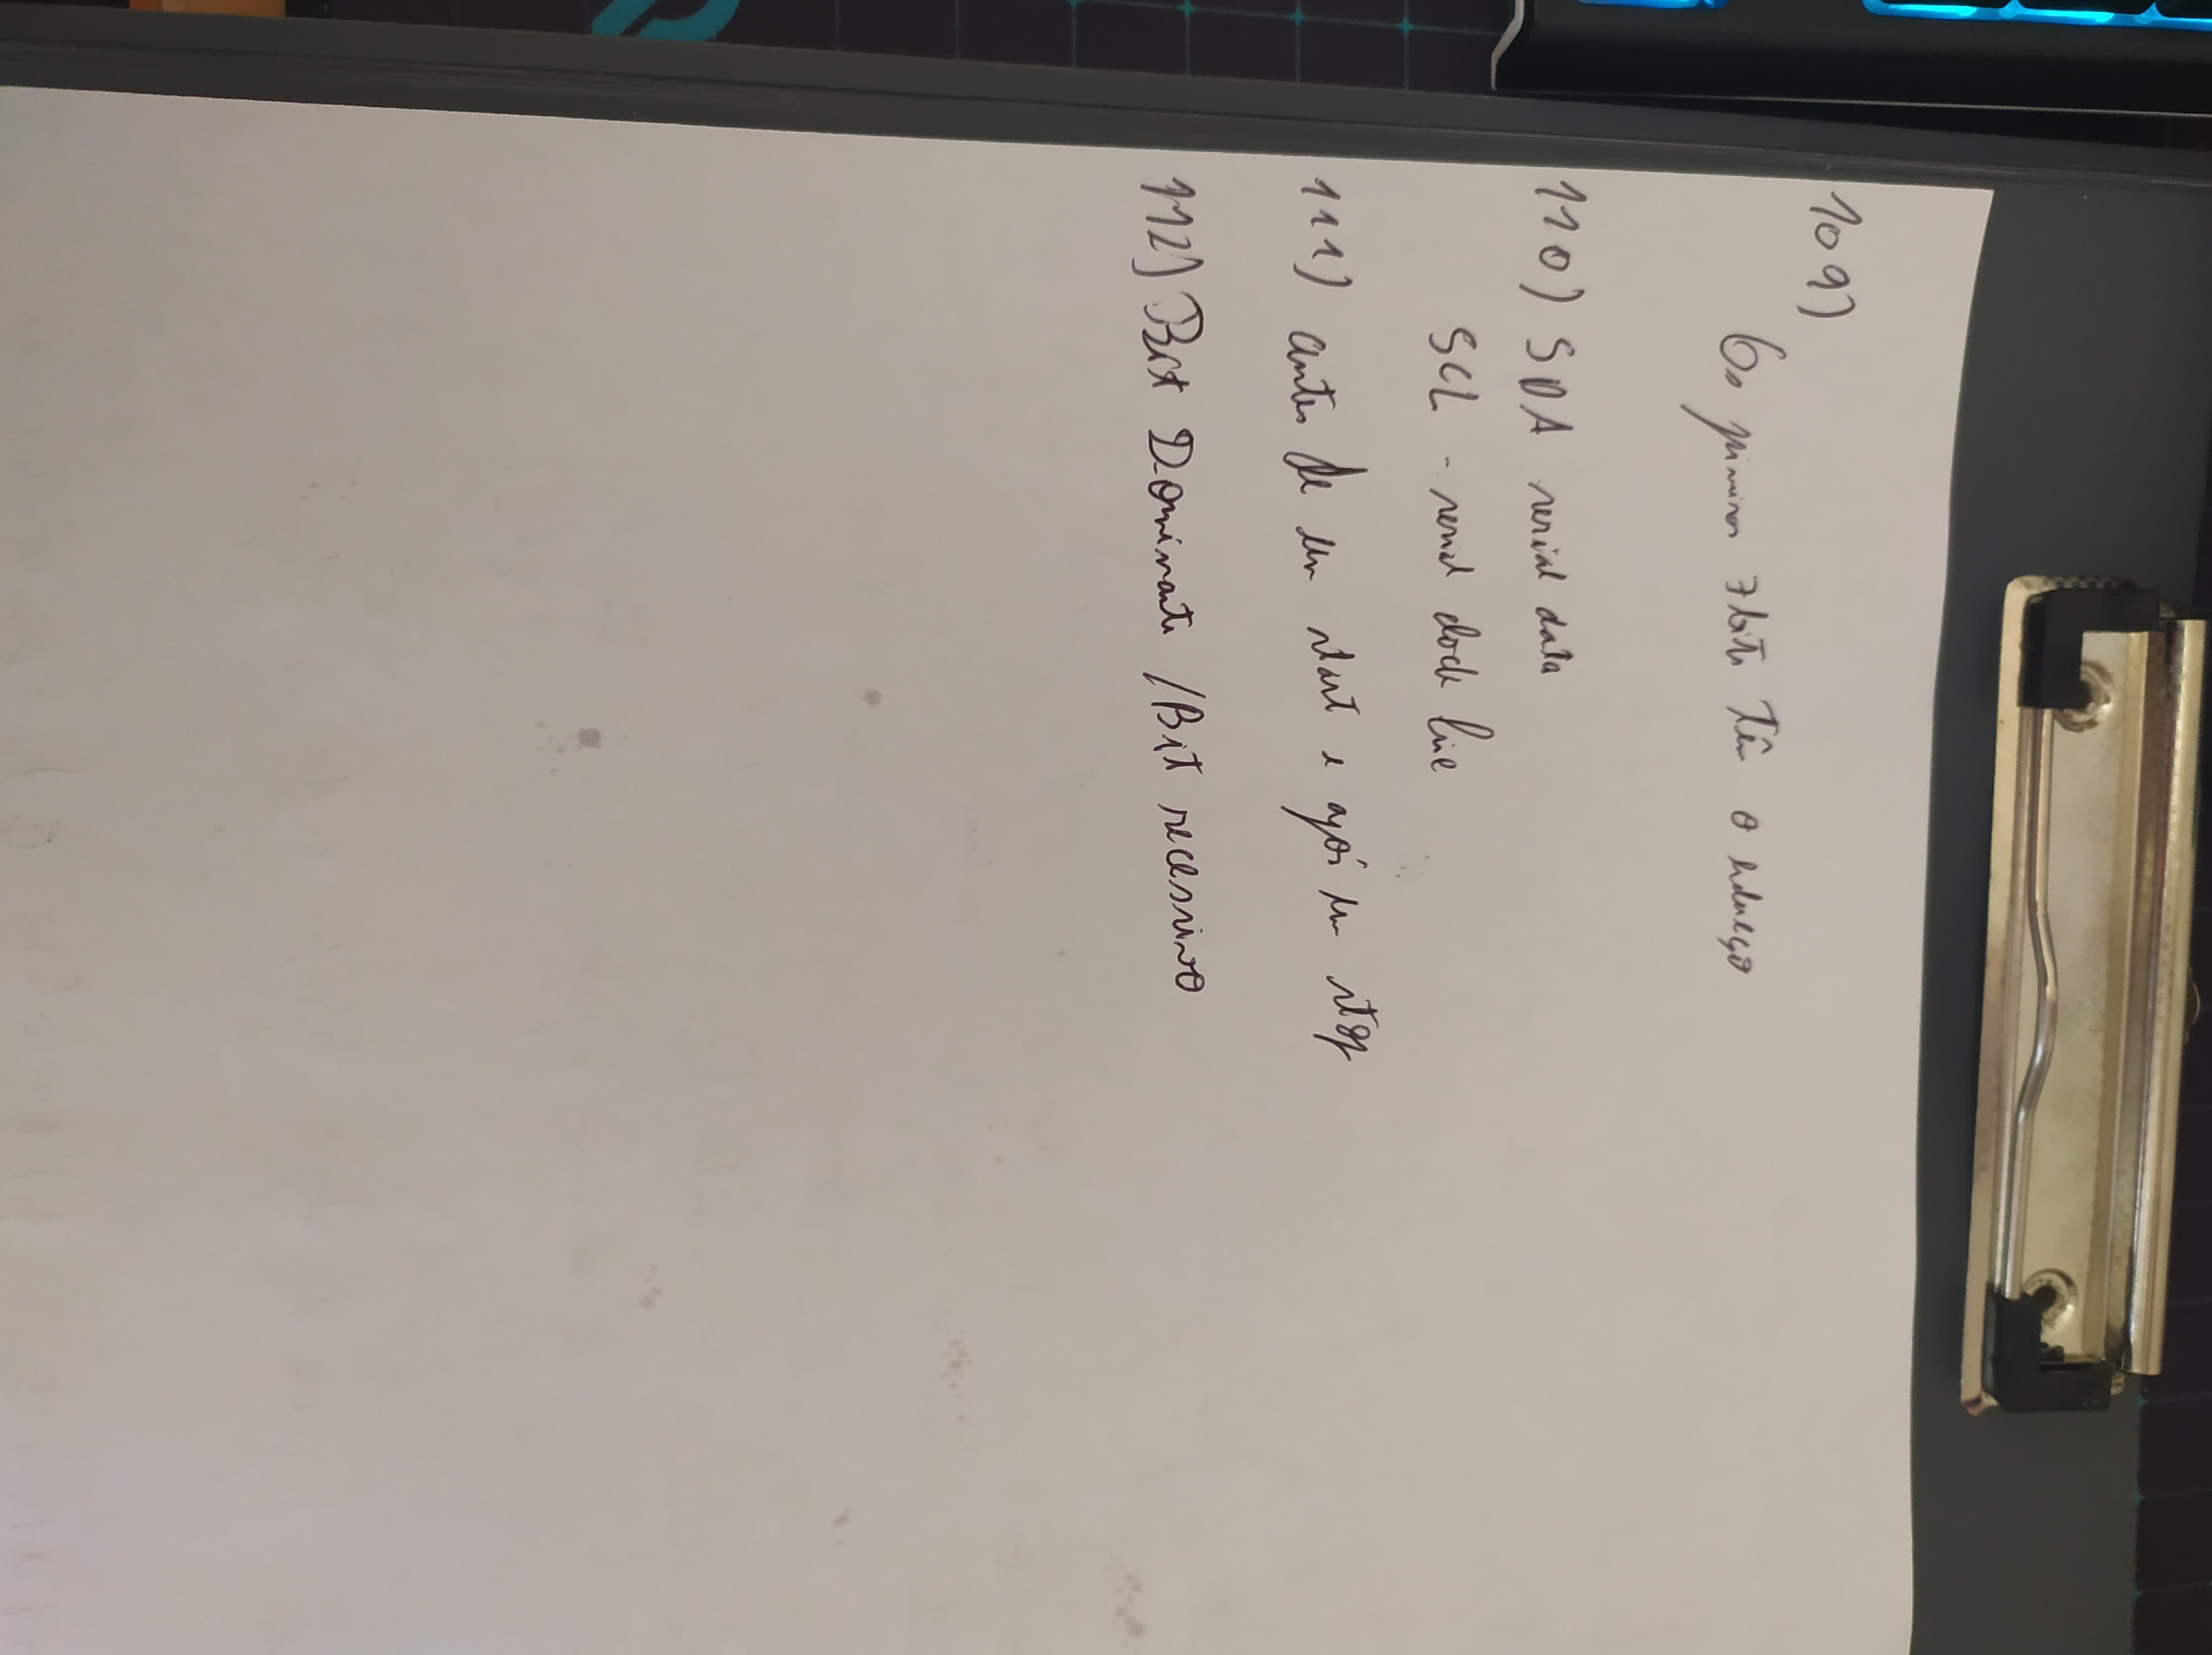 109)
Os primeiros 7 bits Têm o endereço
110) SDA serial data
SCL - serial clock line
111) antes de um start e após um stop
112) Bit Dominante / Bit recessivo